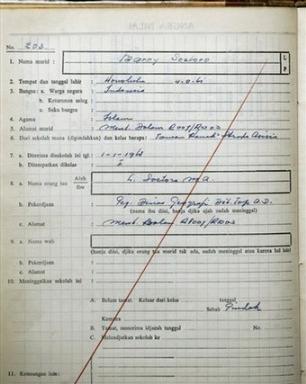 No. 203
1. Nama murid : Barry Soetoro L P
2. Tempat dan tanggal lahir : Honolulu 4-8-61
3. Bangsa : a. Warga negara : Indonesia
b. Keturunan asing :
c. Suku bangsa :
4. Agama : Islam
5. Alamat murid : Ment. Dalam R007/R003
6. Dari sekolah mana (dipindahkan) dan kelas berapa :
7. a. Diterima disekolah ini tgl. : 1-1-1968
b. Ditempatkan dikelas :
8. a. Nama orang tua Ajah Ibu : L. Soetoro M.A.
b. Pekerdjaan : Peg. Dinas Geografi Dit. Top. A.D.
(nama ibu diisi, hanja djika ajah sudah meninggal)
c. Alamat : Ment. Dalam R007/R003
9. a. Nama wali :
(hanja diisi, djika orang tua murid tak ada, sudah meninggal atau karena lal lain)
b. Pekerdjaan :
c. Alamat :
10. Meninggalkan sekolah ini :
A. Belum tamat. Keluar dari kelas tanggal
Sebab Pindah
Kemana
B. Tamat, menerima idjazah tanggal No.
C. Melandjutkan sekolah ke
11. Keterangan lain :